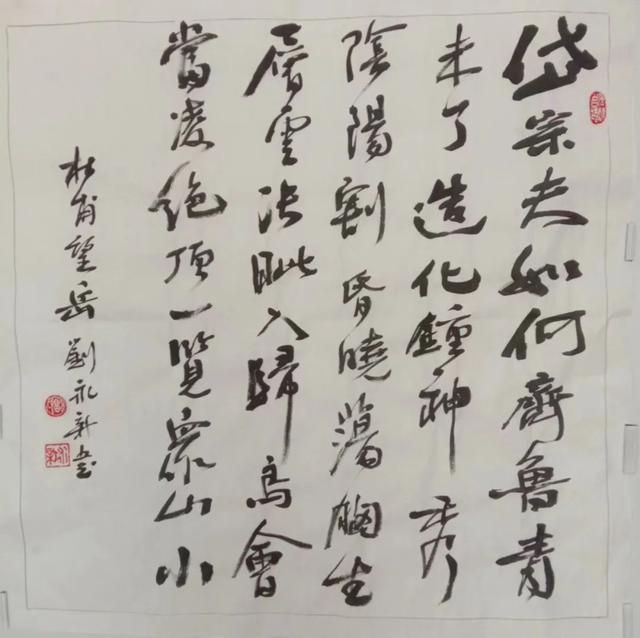 岱宗夫如何齊魯青
未了造化鍾神秀
陰陽割昏曉蕩胸生
層雲決眦入歸鳥會
當凌絶頂一覽衆山小
杜甫望岳劉永新書